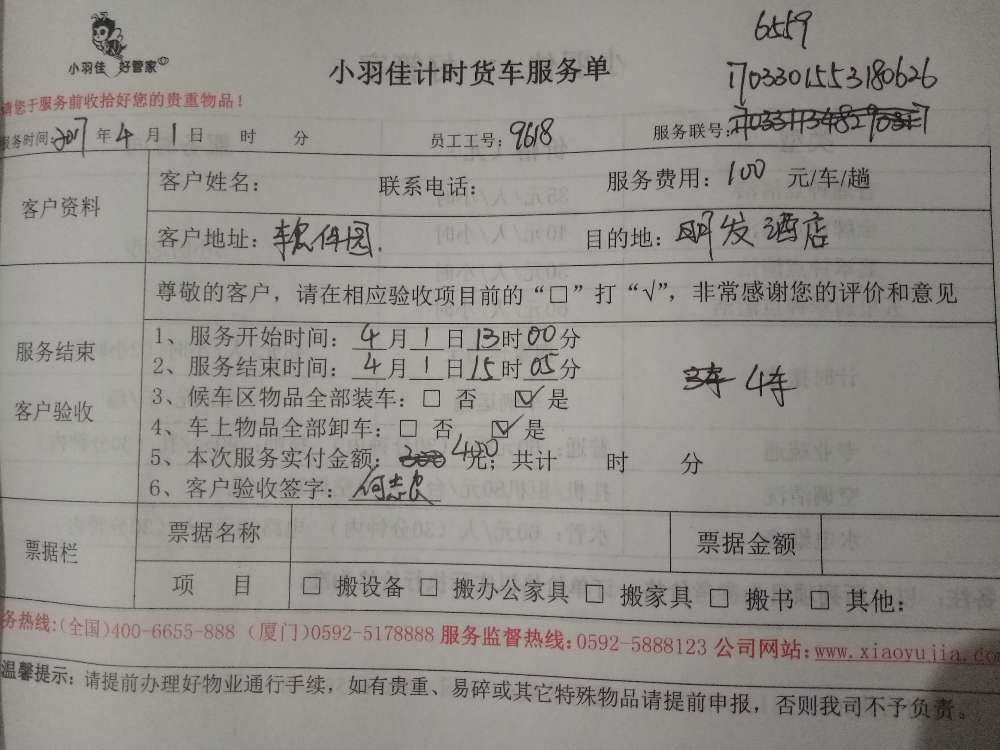 6559
小羽佳 好管家
小羽佳计时货车服务单
17033015531 80626
请您于服务前收拾好您的贵重物品！
服务时间：2017年4月1日 时 分 员工工号：9618 服务联号：
客户资料
客户姓名： 联系电话： 服务费用：100 元/车/趟
客户地址：软件园. 目的地：明发酒店
服务结束
客户验收
尊敬的客户，请在相应验收项目前的“□”打“√”，非常感谢您的评价和意见
1、服务开始时间：4月1日13时00分
2、服务结束时间：4月1日15时05分
4车
3、候车区物品全部装车：□ 否 ☑ 是
4、车上物品全部卸车：□ 否 ☑ 是
5、本次服务实付金额：400元；共计 时 分
6、客户验收签字：
票据栏
票据名称 票据金额
项 目 □ 搬设备 □ 搬办公家具 □ 搬家具 □ 搬书 □ 其他：
务热线：(全国)400-6655-888 (厦门)0592-5178888 服务监督热线：0592-5888123 公司网站：www.xiaoyujia.co
温馨提示：请提前办理好物业通行手续，如有贵重、易碎或其它特殊物品请提前申报，否则我司不予负责。